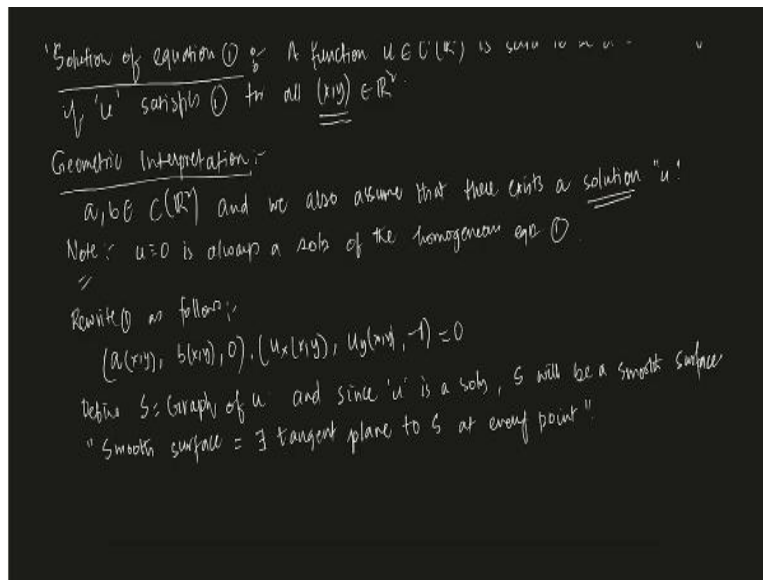 "Solution of equation ① : A function u ∈ C'(ℝ²) is said to be a
if 'u' satisfies ① for all (x,y) ∈ ℝ².
Geometric Interpretation:-
a, b ∈ C(ℝ²) and we also assume that there exists a solution "u".
Note:- u≡0 is always a soln of the homogenean eqn ①.
Rewrite ① as follows:-
(a(x,y), b(x,y), 0) . (ux(x,y), uy(x,y), -1) = 0
Define S = Graph of u and since 'u' is a soln, S will be a smooth surface
"Smooth surface = ∃ tangent plane to S at every point"